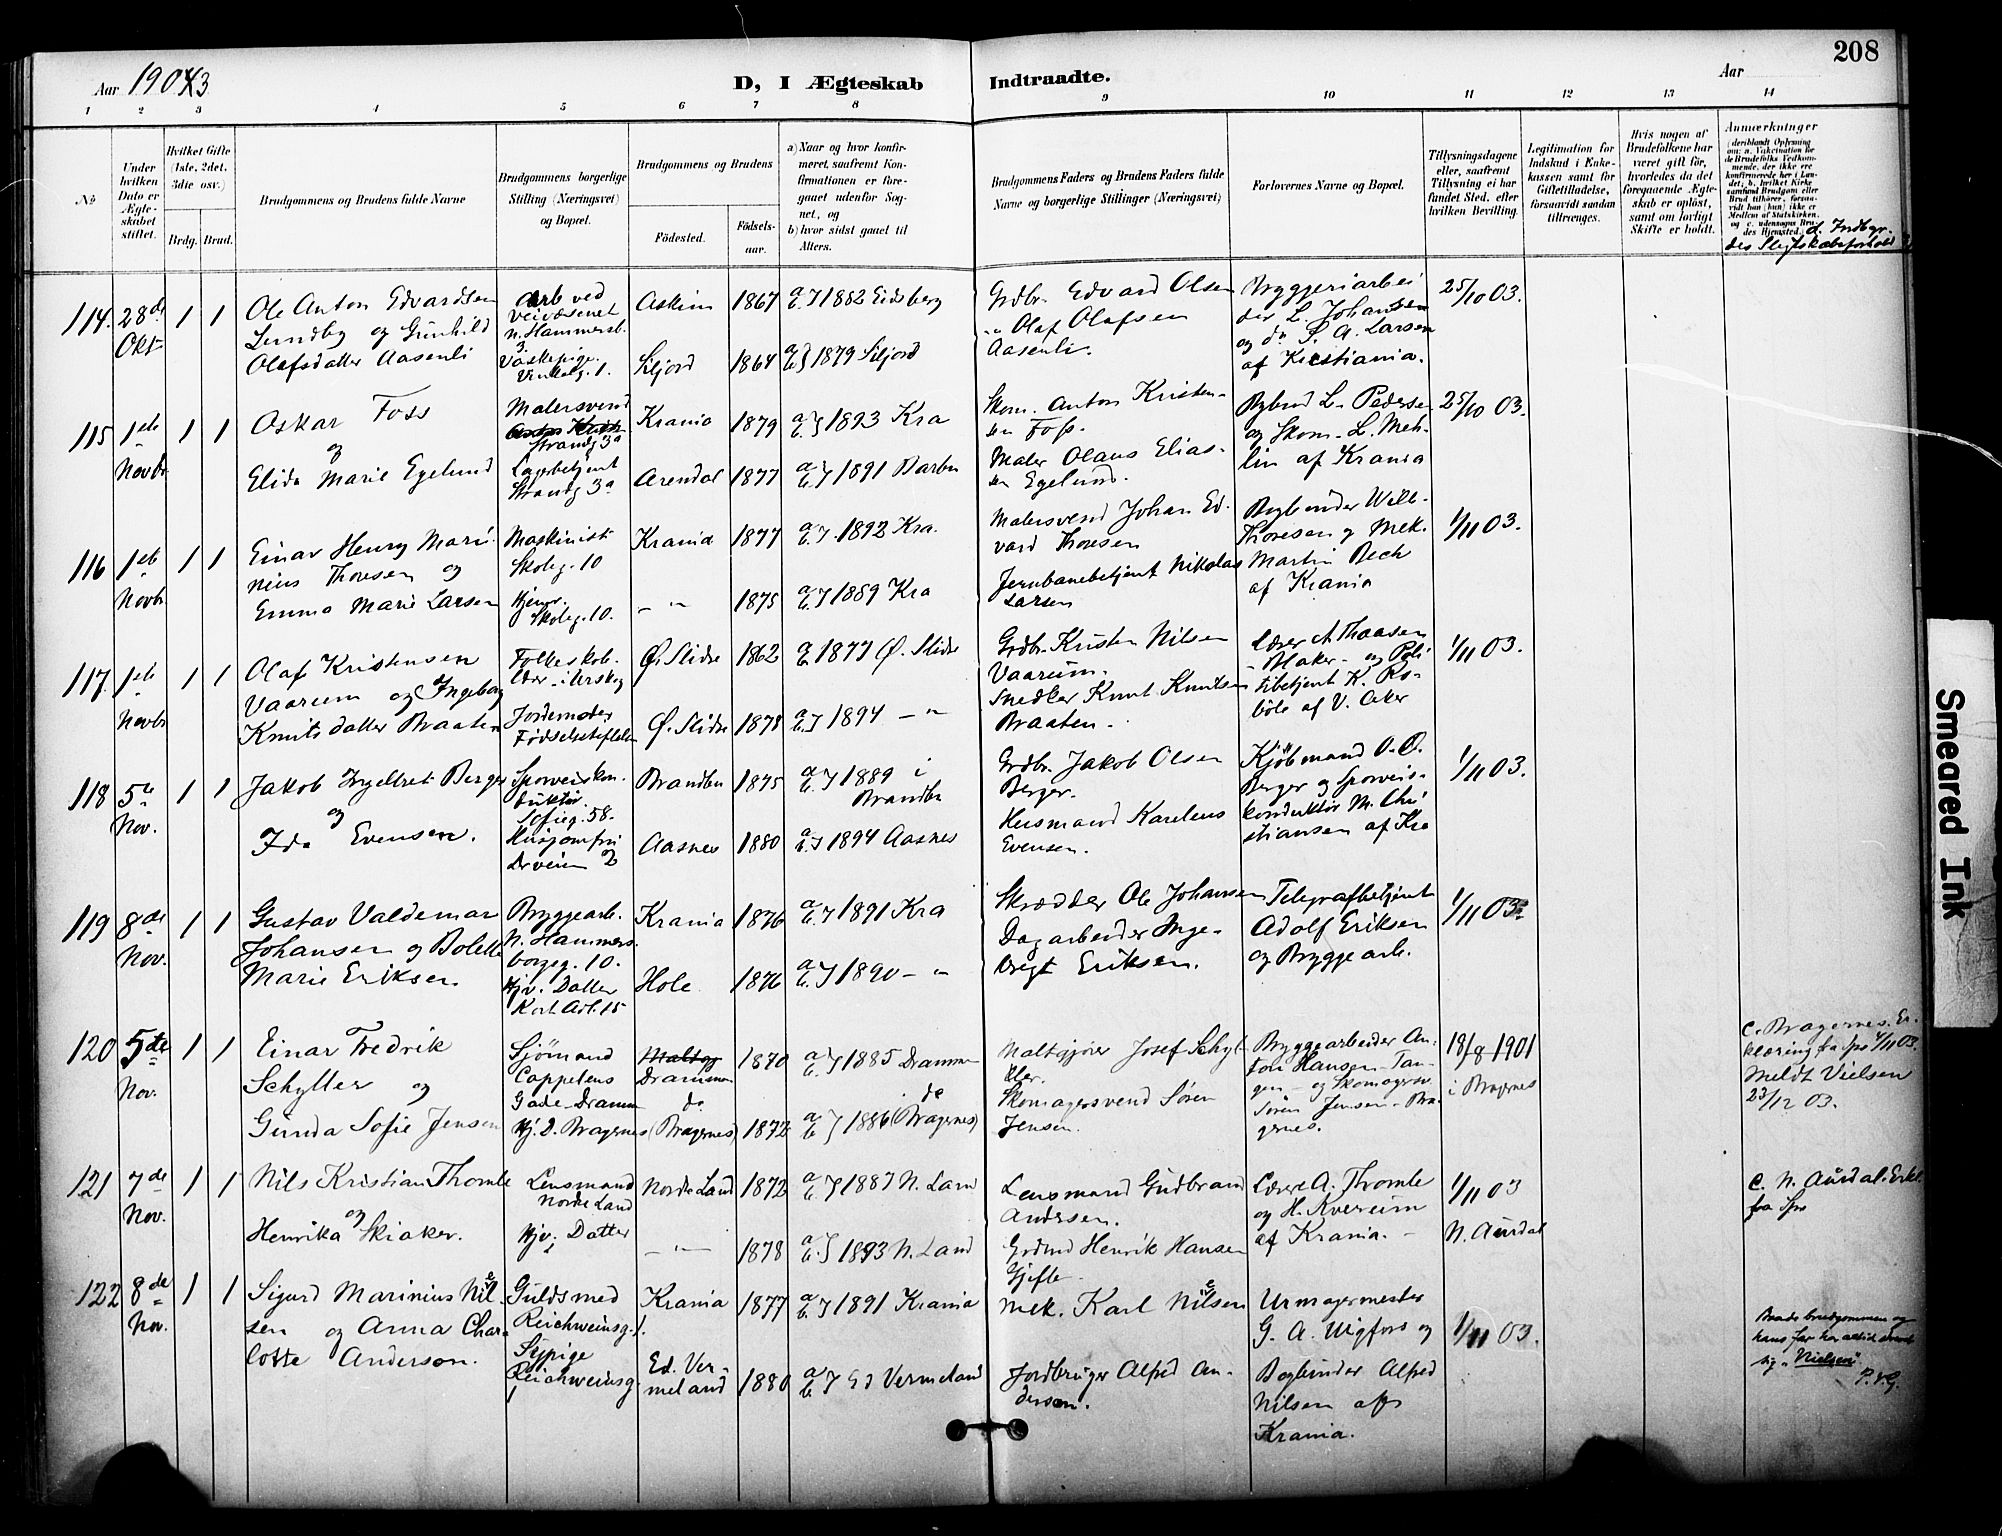 208
Aar 1903
D, I Ægteskab Indtraadte.
Aar
1 2 3 4 5 6 7 8 9 10 11 12 13 14
No
Under hvilken Dato er Ægteskabet stiftet.
Hvilket Gifte (1ste, 2det, 3die osv.)
Brdg. Brud.
Brudgommens og Brudens fulde Navne
Brudgommens borgerlige Stilling (Næringsvei) og Bopæl.
Brudgommens og Brudens
Fødested.
Fødselsaar.
a) Naar og hvor konfirmeret, saafremt Konfirmationen er foregaaet udenfor Sognet, og
b) hvor sidst gaaet til Alters.
Brudgommens Faders og Brudens Faders fulde Navne og borgerlige Stillinger (Næringsvei)
Forlovernes Navne og Bopæl.
Tillysningsdagene eller, saafremt Tillysning ei har fundet Sted, efter hvilken Bevilling.
Legitimation for Indskud i Enkekassen samt for Giftetilladelse, forsaavidt saadan tiltrænges.
Hvis nogen af Brudefolkene har været gift før, hvorledes da det foregaaende Ægteskab er opløst, samt om lovligt Skifte er holdt.
Anmærkninger (deriblandt Oplysning om: a. Vakcination for de Brudefolks Vedkommende, der ikke ere konfirmerede her i Landet; b. hvilket Kirkesamfund Brudgom eller Brud tilhører, forsaavidt han (hun) ikke er Medlem af Statskirken, og c. udensogns Brudes Hjemsted.
d. Indbyrdes Slegtskabsforhold
114. 28de Okt 1 1
Ole Anton Edvardsen
Lundby og Gunhild
Olafsdatter Aasenli
Arb ved
veivæsenet
n. Hammersb.
3.
Vaskepige.
1.
Askim 1867 a 1882 Eidsberg
Siljord 1864 a 1879 Siljord
Grdbr. Edvard Olsen
" Olaf Olafsen
Aasenli.
Bryggeriarbei
der L. Johansen
og do S. A. Larsen
af Kristiania.
25/10 03.
115 1ste Novbr 1 1
Oskar Foss
og
Elida Marie Egelund
Malersvend
Strandg 3a
Lagerbetjent
Strandg 3a
Krania 1879 a 1893 Kra
Arendal 1877 a 1891 Barbu
Skom. Anton Kristen-
sen Foss.
Maler Olaus Elias-
sen Egelund.
Bybud L. Peders
og Skom. L. Meh-
lin af Krania
25/10 03.
116 1ste Novb 1 1
Einar Henry Mari-
nius Thoresen og
Emma Marie Larsen
Maskinist
Skoleg. 10
Hjem.
Skoleg. 10.
Krania 1877 a 1892 Kra.
- " 1875 a 1889 Kra
Malersvend Johan Ed-
vard Thoresen
Jernbanebetjent Nikolai
Larsen
Bogbinder Wilh.
Thoresen og Mek.
Martin Bech
af Krania
1/11 03.
117. 1ste Novb 1 1
Olaf Kristensen
Vaarum og Ingeborg
Knutsdatter Braaten
Folkeskole-
lær. i Urskog
Jordemoder
Fødselsstiftelsen
Ø. Slidre 1862 a 1877 Ø. Slidre
Ø. Slidre 1878 a 1894 - "
Grdbr. Kristen Nilsen
Vaarum.
Snedker Knut Knutsen
Braaten.
Lærer A. Thoasen
- Blaker - og Poli
tibetjent K. Ro-
böle af V. Aker
1/11 03.
118 5te Nov. 1 1
Jakob Ingebret Berger
og
Ida Evensen.
Sporveiskon-
duktør
Sofieg. 58.
Husjomfru
Brandbu 1875 a 1889 i
Brandbu
Aasnes 1880 a 1894 Aasnes
Grdbr. Jakob Olsen
Berger.
Husmand Karelius
Evensen.
Kjöbmand O. O.
Berger og Sporveis-
konduktør M. Chri
stiansen af Kra
1/11 03.
119 8de Nov. 1 1
Gustav Valdemar
Johansen og Bolette
Marie Eriksen.
Bryggearb.
N. Hammers-
borgg. 10.
Hjv. Datter
Kort Adl. 15
Krania 1876 a 1891 Kra
Hole 1876 a 1890 - "
Skrædder Ole Johansen
Dagarbeider Inge-
bregt Eriksen.
Telegrafbetjent
Adolf Eriksen
og Bryggearb.
1/11 03
120 5te Nov. 1 1
Einar Fredrik
Schyller og
Gunda Sofie Jensen
Sjömand
Cappelens
Gade - Dramm
Hj. D. Bragernes
Drammen 1870 a 1885 Dramme
do (Bragernes) 1872 a 1886 do (Bragernes)
Maltgjører Josef Schyl-
ler.
Skomagersvend Søren
Jensen.
Bryggearbeider An-
ton Hansen - Tan-
gen - og Skomagersv
Søren Jensen - Bra-
gernes.
18/8 1901
i Bragernes
c. Bragernes. Er-
klæring fra Spr 4/11 03.
Meldt Vielsen
23/12 03.
121 7de Nov. 1 1
Nils Kristian Thomle
og
Henrika Skiaker.
Lensmand
Nordre Land
Hjv. Datter
Nordre Land 1872 a 1887 N. Land
- " - 1878 a 1893 N. Land
Lensmand Gudbrand
Andersen.
Grdmd Henrik Hansen
Gjefle
Lærer A. Thomle
og H. Kværum
af Krania. -
1/11 03
N. Aurdal
c. N. Aurdal. Erkl.
fra Spr
122 8de Nov. 1 1
Sigurd Marinius Nil-
sen og Anna Char-
lotte Anderson.
Guldsmed
Reichweinsg. 1.
Sypige
Reichweinsg.
1
Krania 1877 a 1891 Krania
Ed. Ver-
meland 1880 a Ed Vermeland
Mek. Karl Nilsen
Jordbruger Alfred An-
derson.
Urmagermester
G. A. Vigfors og
Bogbinder Alfred
Nilsen af
Krania.
1/11 03.
Baade brudgommen og
hans far har altid skrevet
sig "Nielsen".
P. v. G.
Smeared Ink